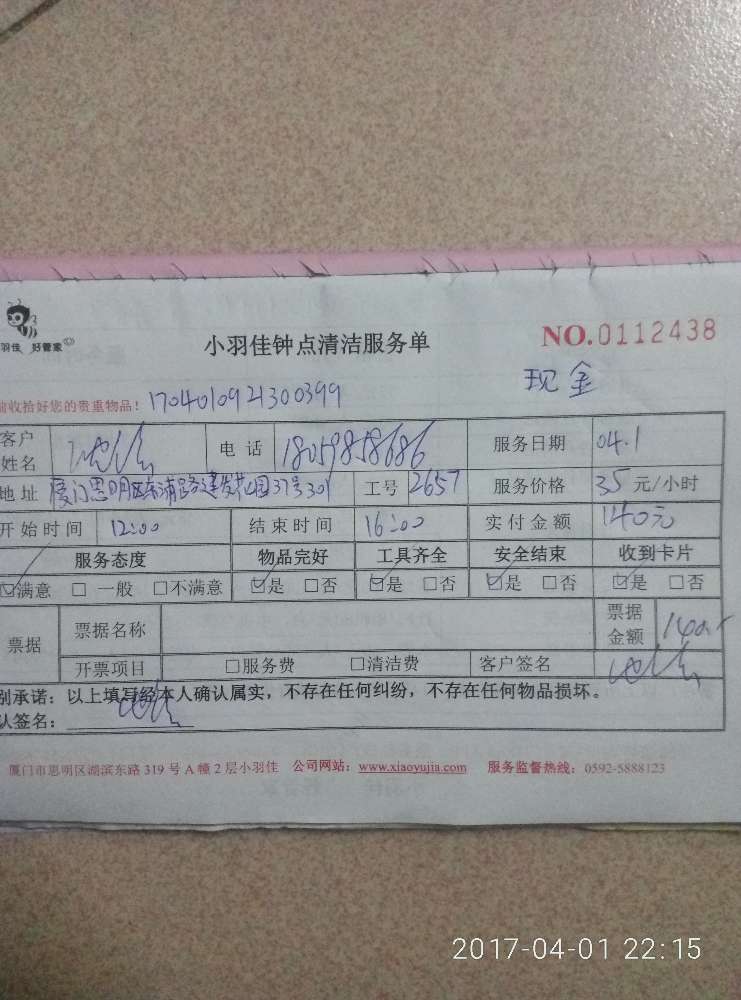 羽佳 好管家
小羽佳钟点清洁服务单
NO.0112438
现金
前收拾好您的贵重物品! 1704010921300399
客户姓名 电话 18059858686 服务日期 04.1
地址 厦门思明区东浦路建发花园37号301 工号 2657 服务价格 35 元/小时
开始时间 12:00 结束时间 16:00 实付金额 140元
服务态度 物品完好 工具齐全 安全结束 收到卡片
☑满意 □一般 □不满意 ☑是 □否 ☑是 □否 ☑是 □否 ☑是 □否
票据 票据名称 票据金额
开票项目 □服务费 □清洁费 客户签名
别承诺：以上填写经本人确认属实，不存在任何纠纷，不存在任何物品损坏。
认签名：
厦门市思明区湖滨东路 319 号 A 幢 2 层小羽佳 公司网站：www.xiaoyujia.com 服务监督热线：0592-5888123
2017-04-01 22:15